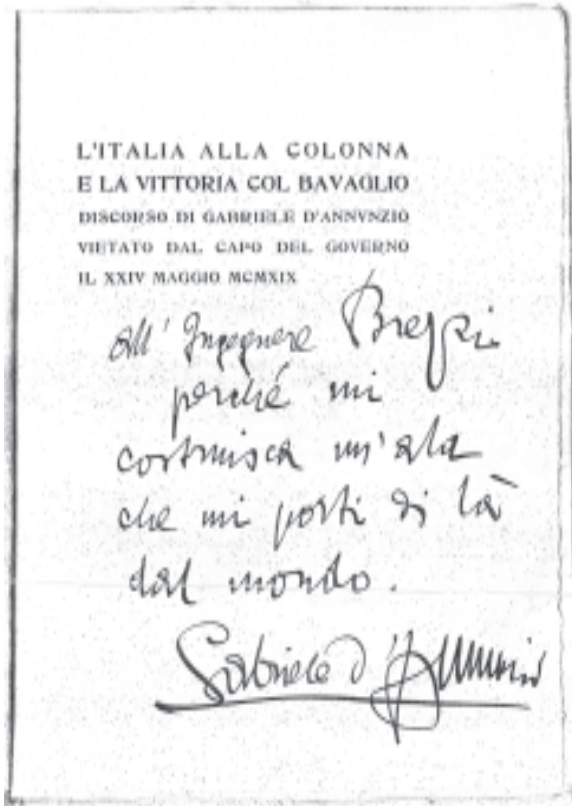 L'ITALIA ALLA COLONNA
E LA VITTORIA COL BAVAGLIO
DISCORSO DI GABRIELE D'ANNVNZIO
VIETATO DAL CAPO DEL GOVERNO
IL XXIV MAGGIO MCMXIX
all' Ingegnere
perché mi
costruisca un'ala
che mi porti di là
dal mondo.
Gabriele d'Annunzio